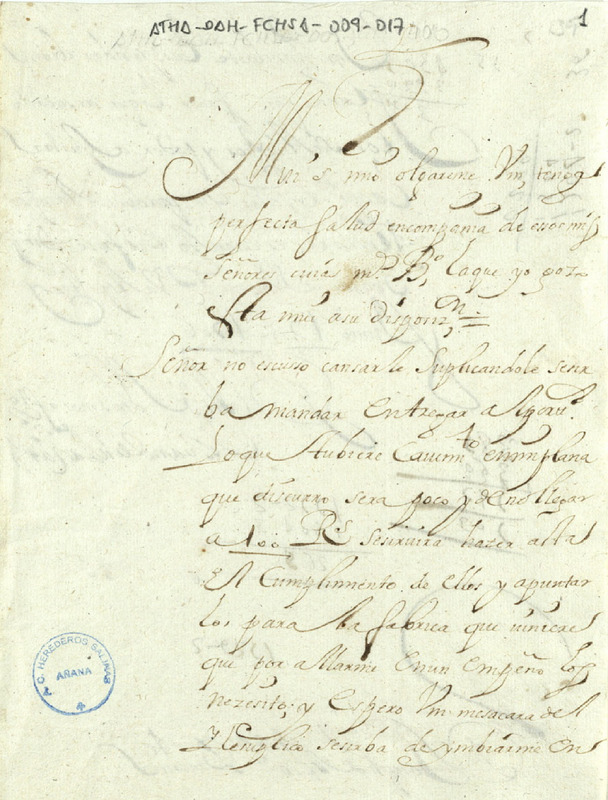 ATHA-DAH-FCHSA-009-017
1
Mui s mio olgareme Vm tenga
perfecta salud en compania de esos mis
Señores cuias m.s B.o la que yo goza
Sta mui a su disposiz.n
Señor no escuso cansarle Suplicandole sesir
ba mandar Entregar a
Lo que Aubiere Caueni.to enmiplana
que discurro sera poco y de no llegar
a 100 R.s seruira hazer asta
El Cumplimento de ellos y apuntar
los para la fabrica que uiniere
que por allarme En un Empeño los
nezesito; y Espero Vm me sacara del
y suplico sesirba de ymbiarme En
P.C. HEREDEROS SALINAS
ARANA